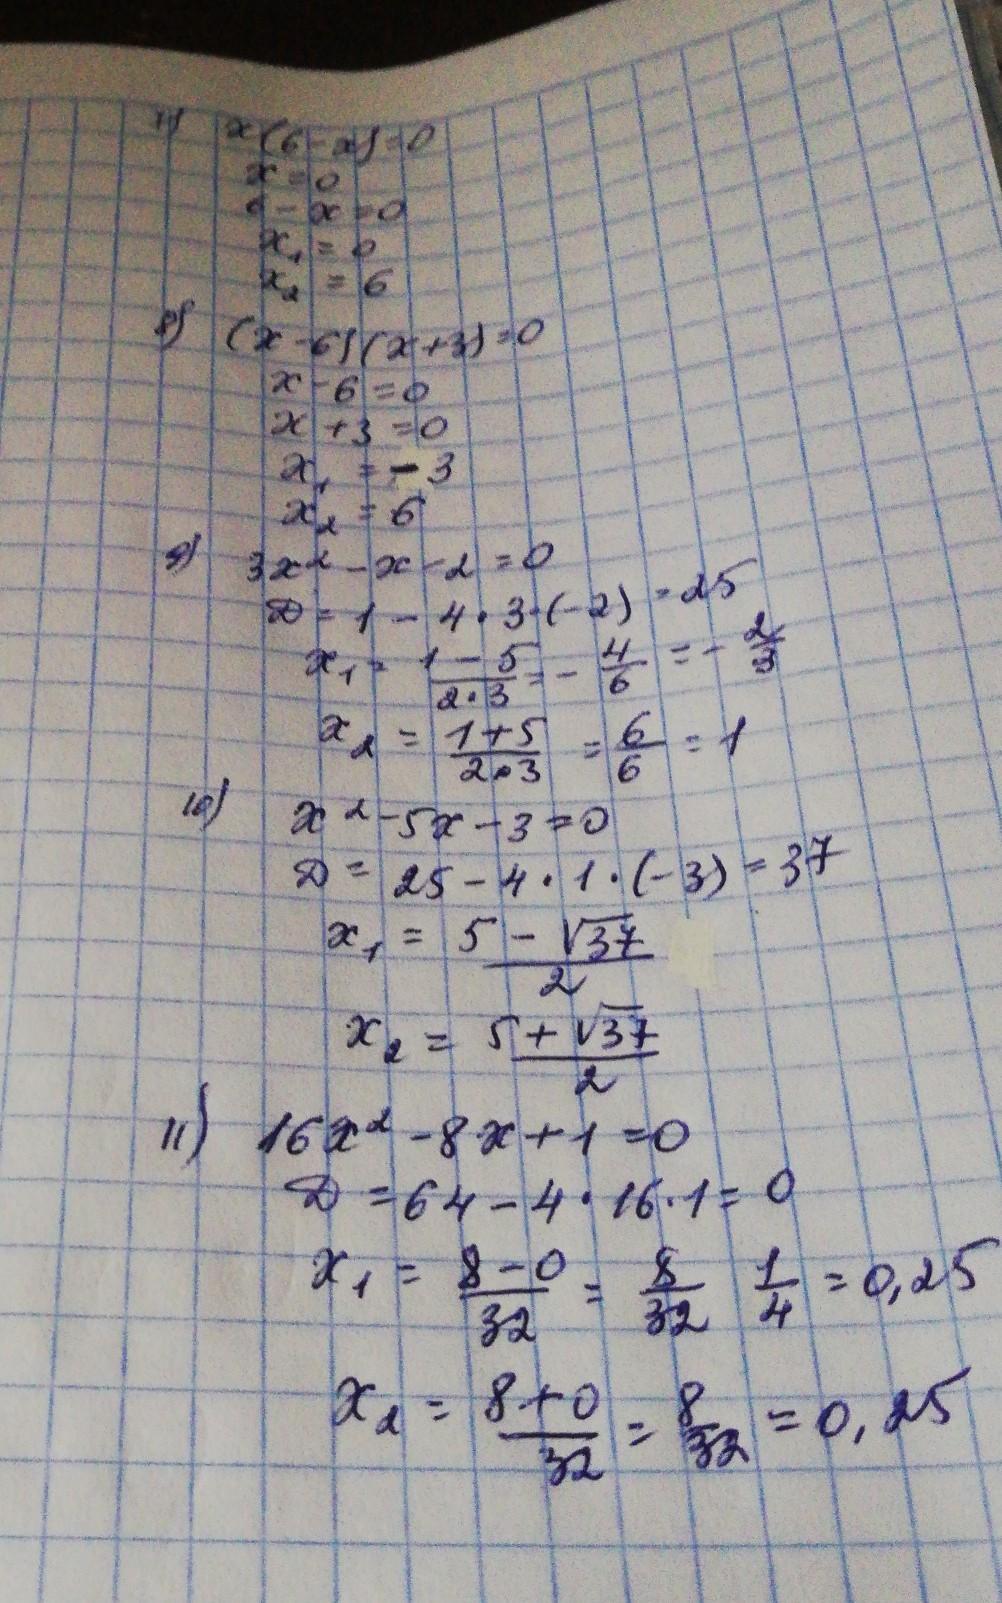 7) x(6-x)=0
x=0
6-x=0
x₁=0
x₂=6
8) (x-6)(x+3)=0
x-6=0
x+3=0
x₁=-3
x₂=6
9) 3x²-x-2=0
D=1-4·3·(-2)=25
x₁=(1-5)/(2·3)=-4/6=-2/3
x₂=(1+5)/(2·3)=6/6=1
10) x²-5x-3=0
D=25-4·1·(-3)=37
x₁=(5-√37)/2
x₂=(5+√37)/2
11) 16x²-8x+1=0
D=64-4·16·1=0
x₁=(8-0)/32=8/32 1/4=0,25
x₂=(8+0)/32=8/32=0,25